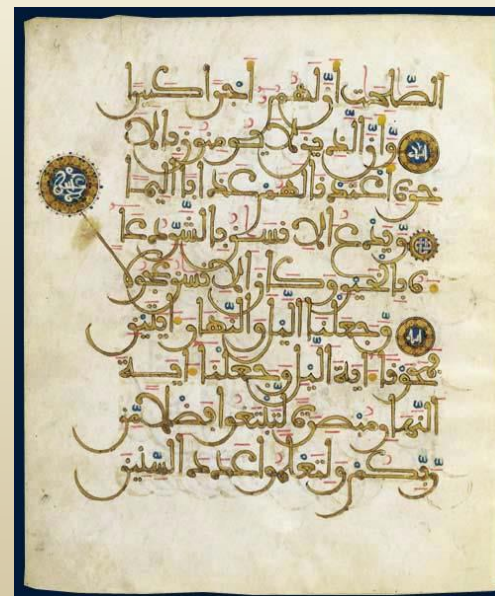 الصّٰلحٰت أنّ لهم أجرا كبيرا
وّأنّ الذين لا يومنون بالا
خرة أعتدنا لهم عذابا أليما
ويدع الانسٰن بالشّرّ دعا
ءه بالخير وكان الانسٰن عجولا
وّجعلنا اليل والنّهار ءايتين
فمحونا ءاية اليل وجعلنا ءاية
النهار مبصرة لّتبتغوا فضلا مّن
رّبّكم ولتعلموا عدد السّنين